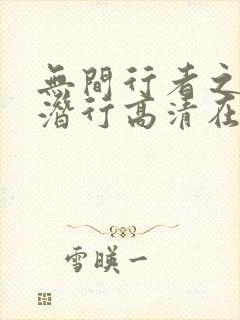 無間行者之
潛行高清在
雪暎一